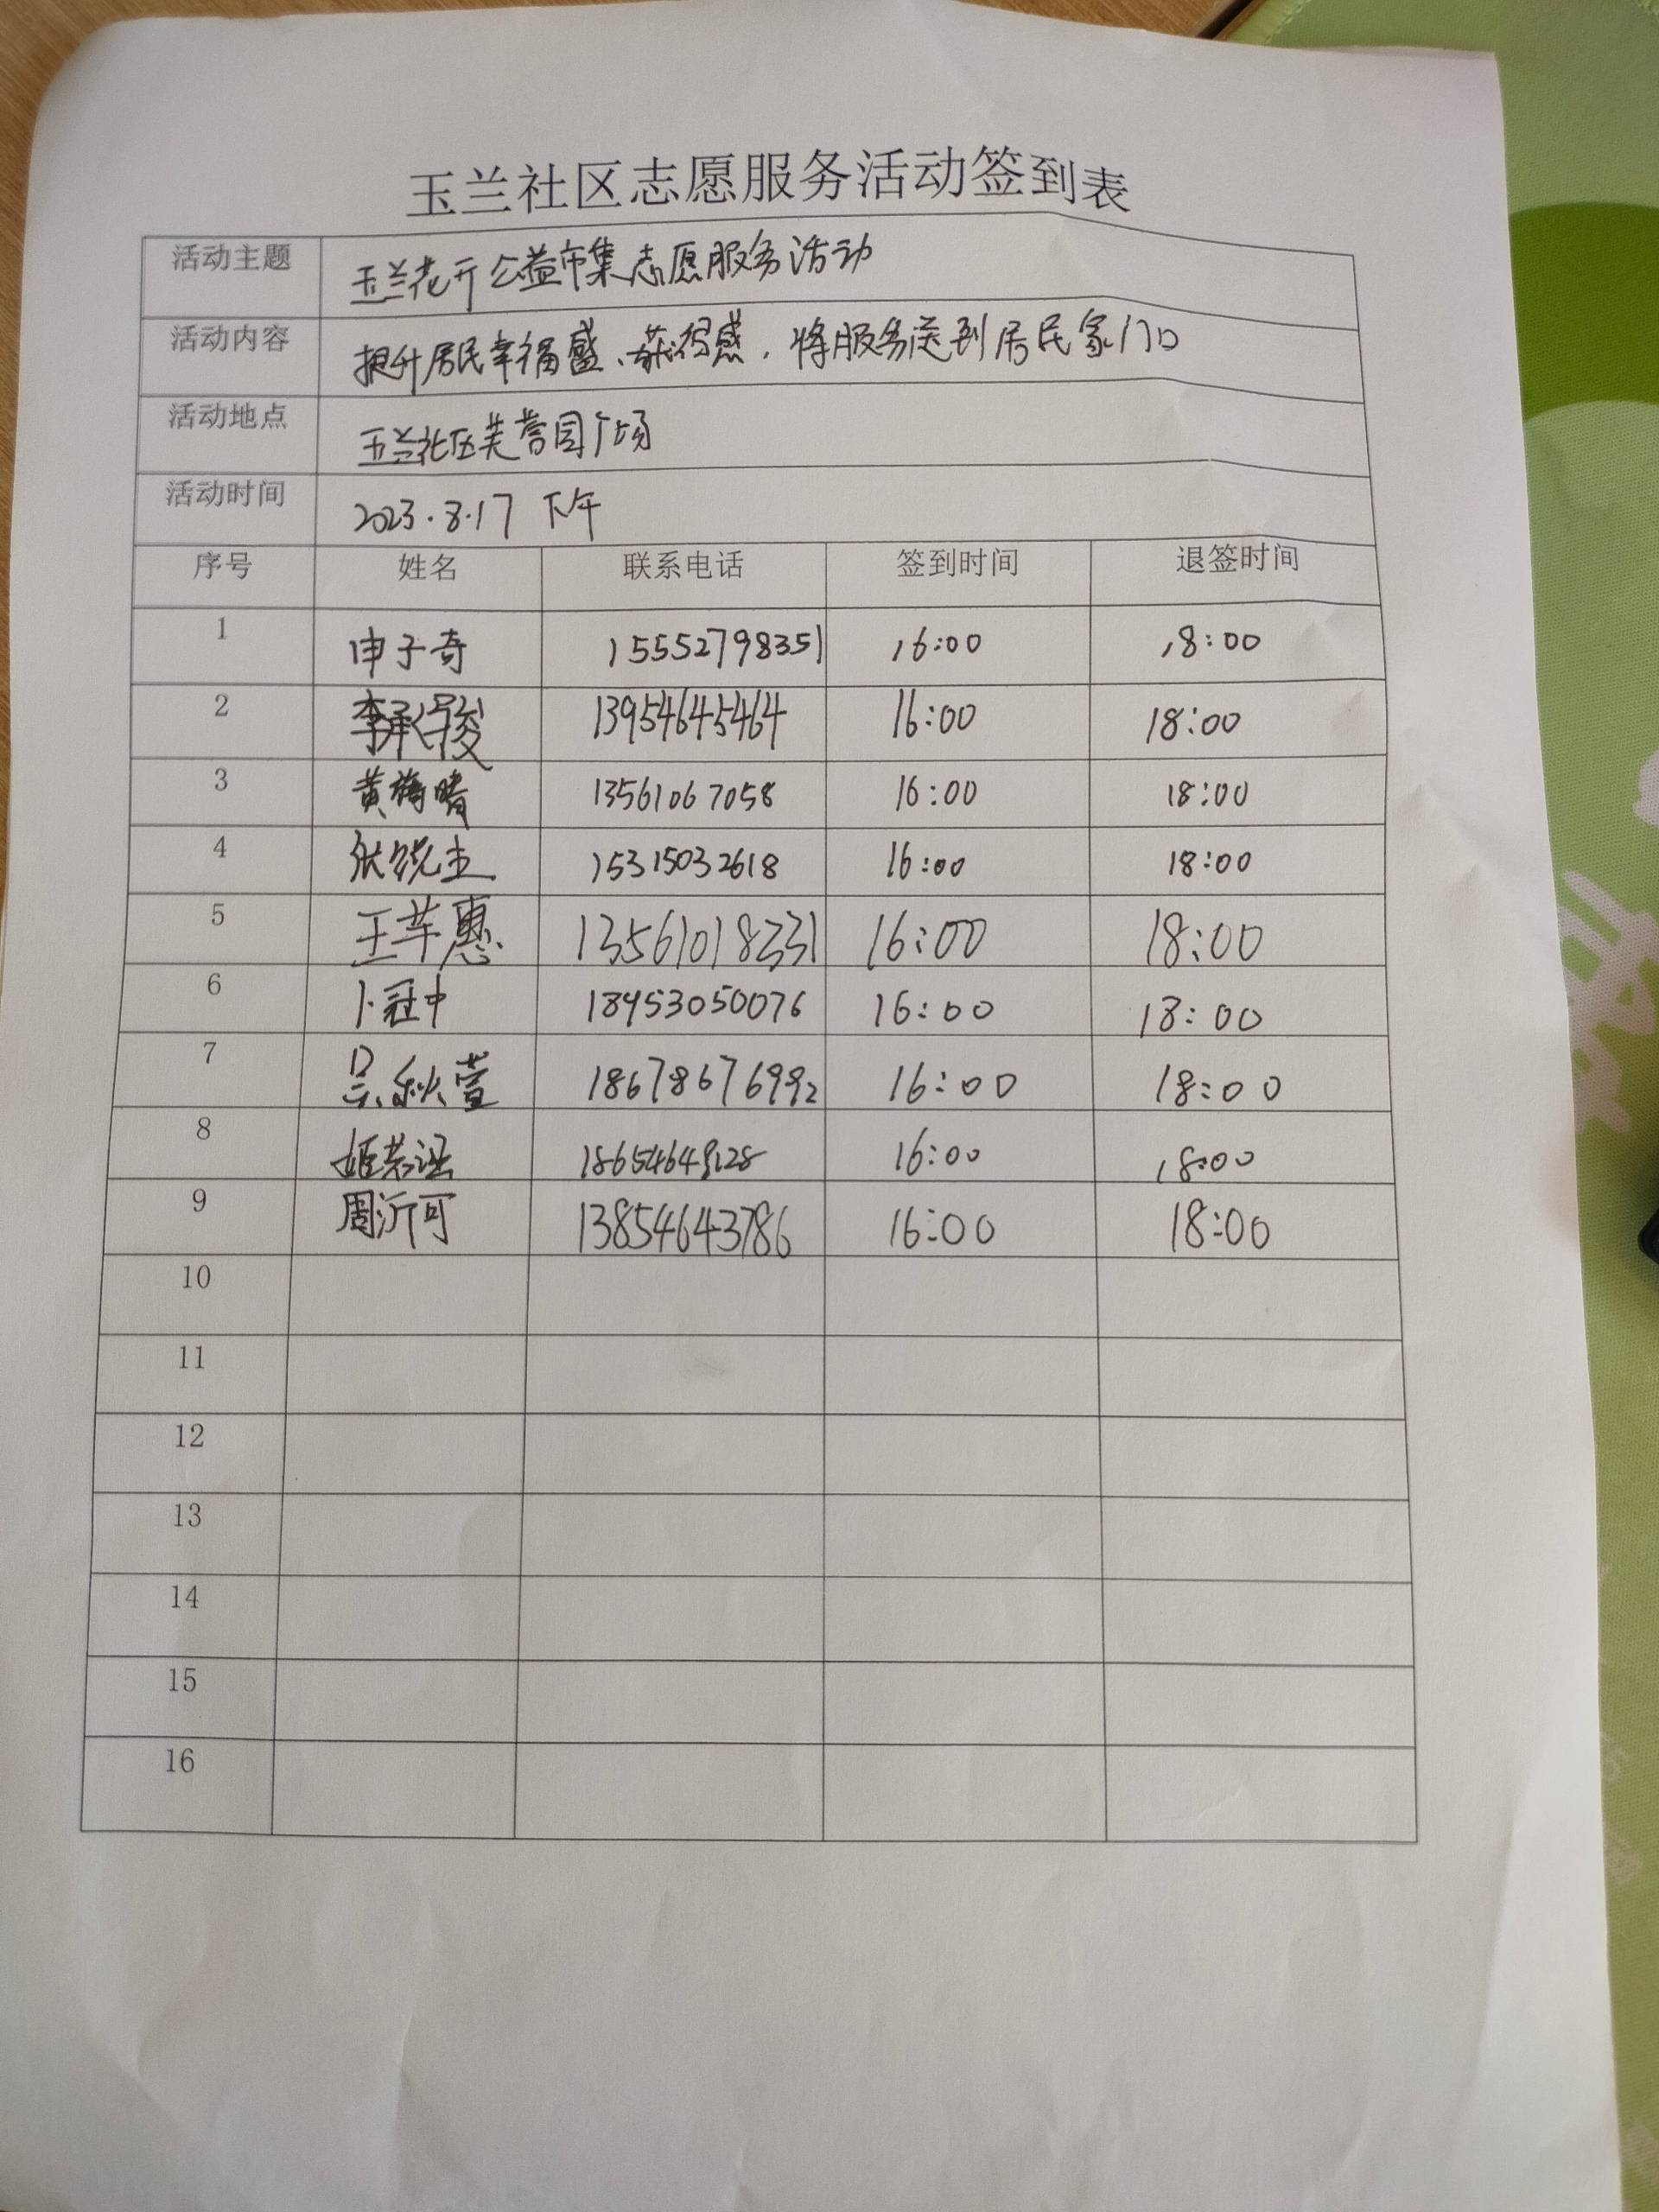 玉兰社区志愿服务活动签到表
活动主题 玉兰花开公益市集志愿服务活动
活动内容 提升居民幸福感、获得感,将服务送到居民家门口
活动地点 玉兰社区芙蓉园广场
活动时间 2023.8.17 下午
序号 姓名 联系电话 签到时间 退签时间
1 申子奇 15552798351 16:00 18:00
2 13954645464 16:00 18:00
3 13561067058 16:00 18:00
4 15315032618 16:00 18:00
5 王芊惠 13561018331 16:00 18:00
6 卜冠中 18953050076 16:00 18:00
7 吴秋萱 18678676992 16:00 18:00
8 18654648128 16:00 18:00
9 周沂可 13854643786 16:00 18:00
10
11
12
13
14
15
16